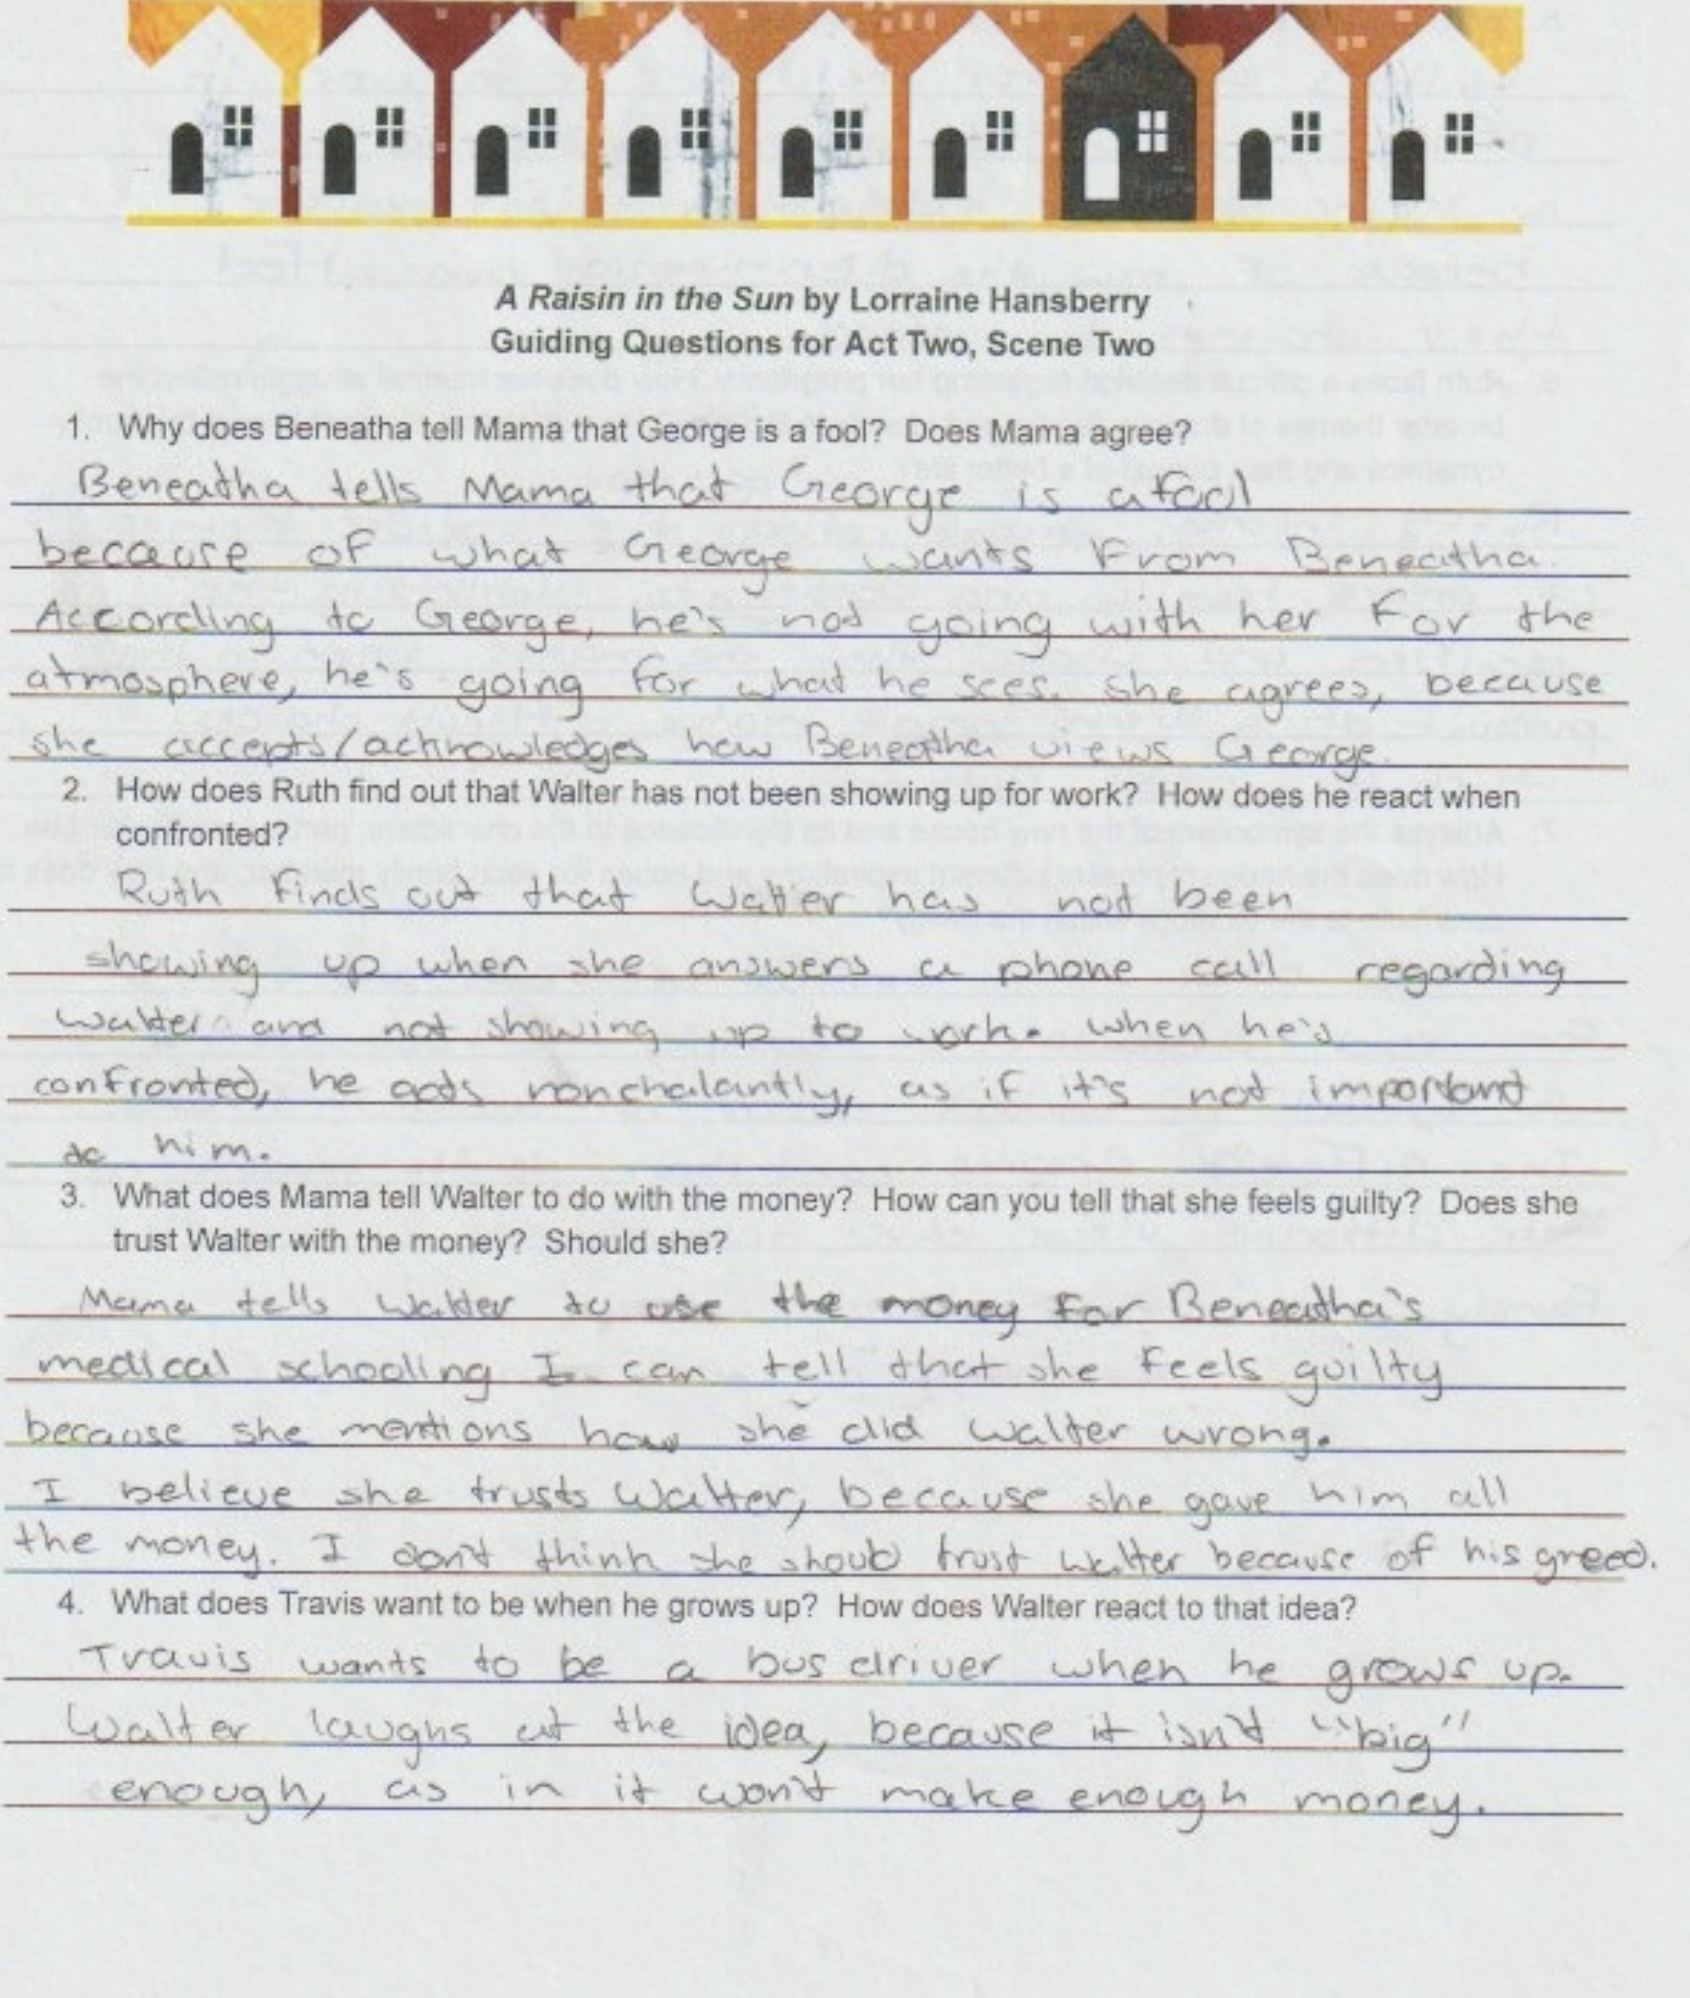 A Raisin in the Sun by Lorraine Hansberry
Guiding Questions for Act Two, Scene Two
1. Why does Beneatha tell Mama that George is a fool? Does Mama agree?
Beneatha tells Mama that George is a fool
because of what George wants from Beneatha.
According to George, he's not going with her for the
atmosphere, he's going for what he sees. She agrees, because
she accepts/acknowledges how Beneatha views George.
2. How does Ruth find out that Walter has not been showing up for work? How does he react when
confronted?
Ruth finds out that Walter has not been
showing up when she answers a phone call regarding
Walter and not showing up to work. when he's
confronted, he acts nonchalantly, as if it's not important
to him.
3. What does Mama tell Walter to do with the money? How can you tell that she feels guilty? Does she
trust Walter with the money? Should she?
Mama tells Walter to use the money for Beneatha's
medical schooling I can tell that she feels guilty
because she mentions how she did Walter wrong.
I believe she trusts Walter, because she gave him all
the money. I don't think she should trust Walter because of his greed.
4. What does Travis want to be when he grows up? How does Walter react to that idea?
Travis wants to be a bus driver when he grows up.
Walter laughs at the idea, because it isn't "big"
enough, as in it won't make enough money.